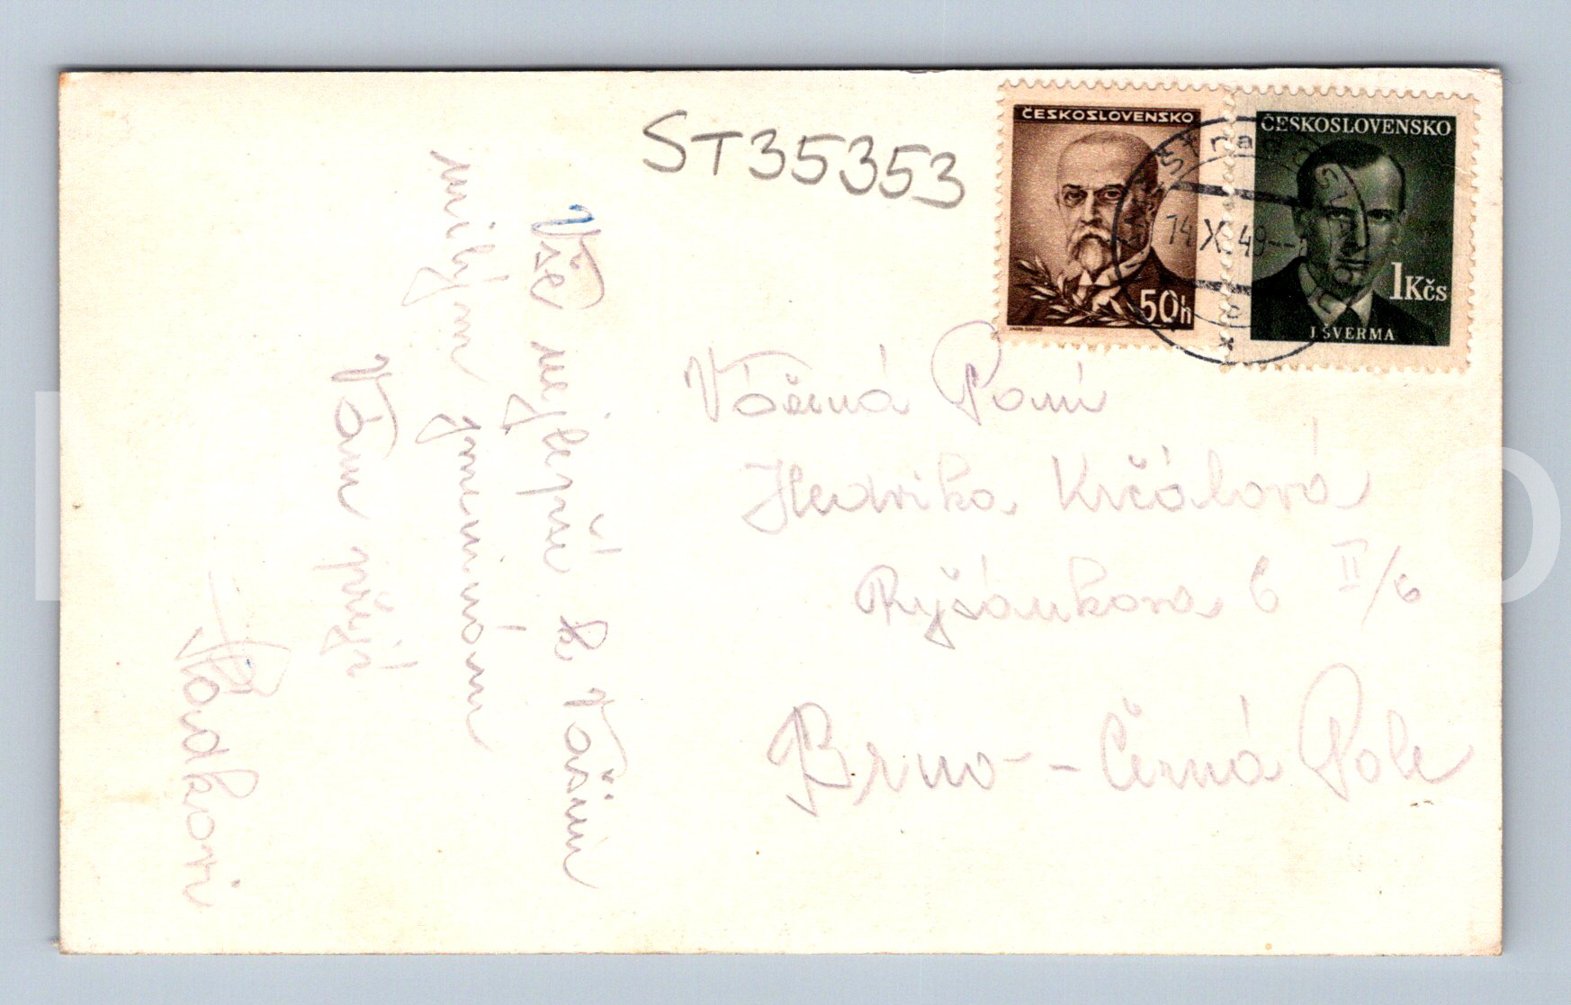 ST35353
ČESKOSLOVENSKO
50h
ČESKOSLOVENSKO
1Kčs
J. ŠVERMA
14.X.49
Vše nejlepší k Vašim
milým jmeninám
Vám přejí
Hladkovi
Vážená Paní
Hedvika Krčálová
Ryšánkova 6 II/6
Brno - Černá Pole